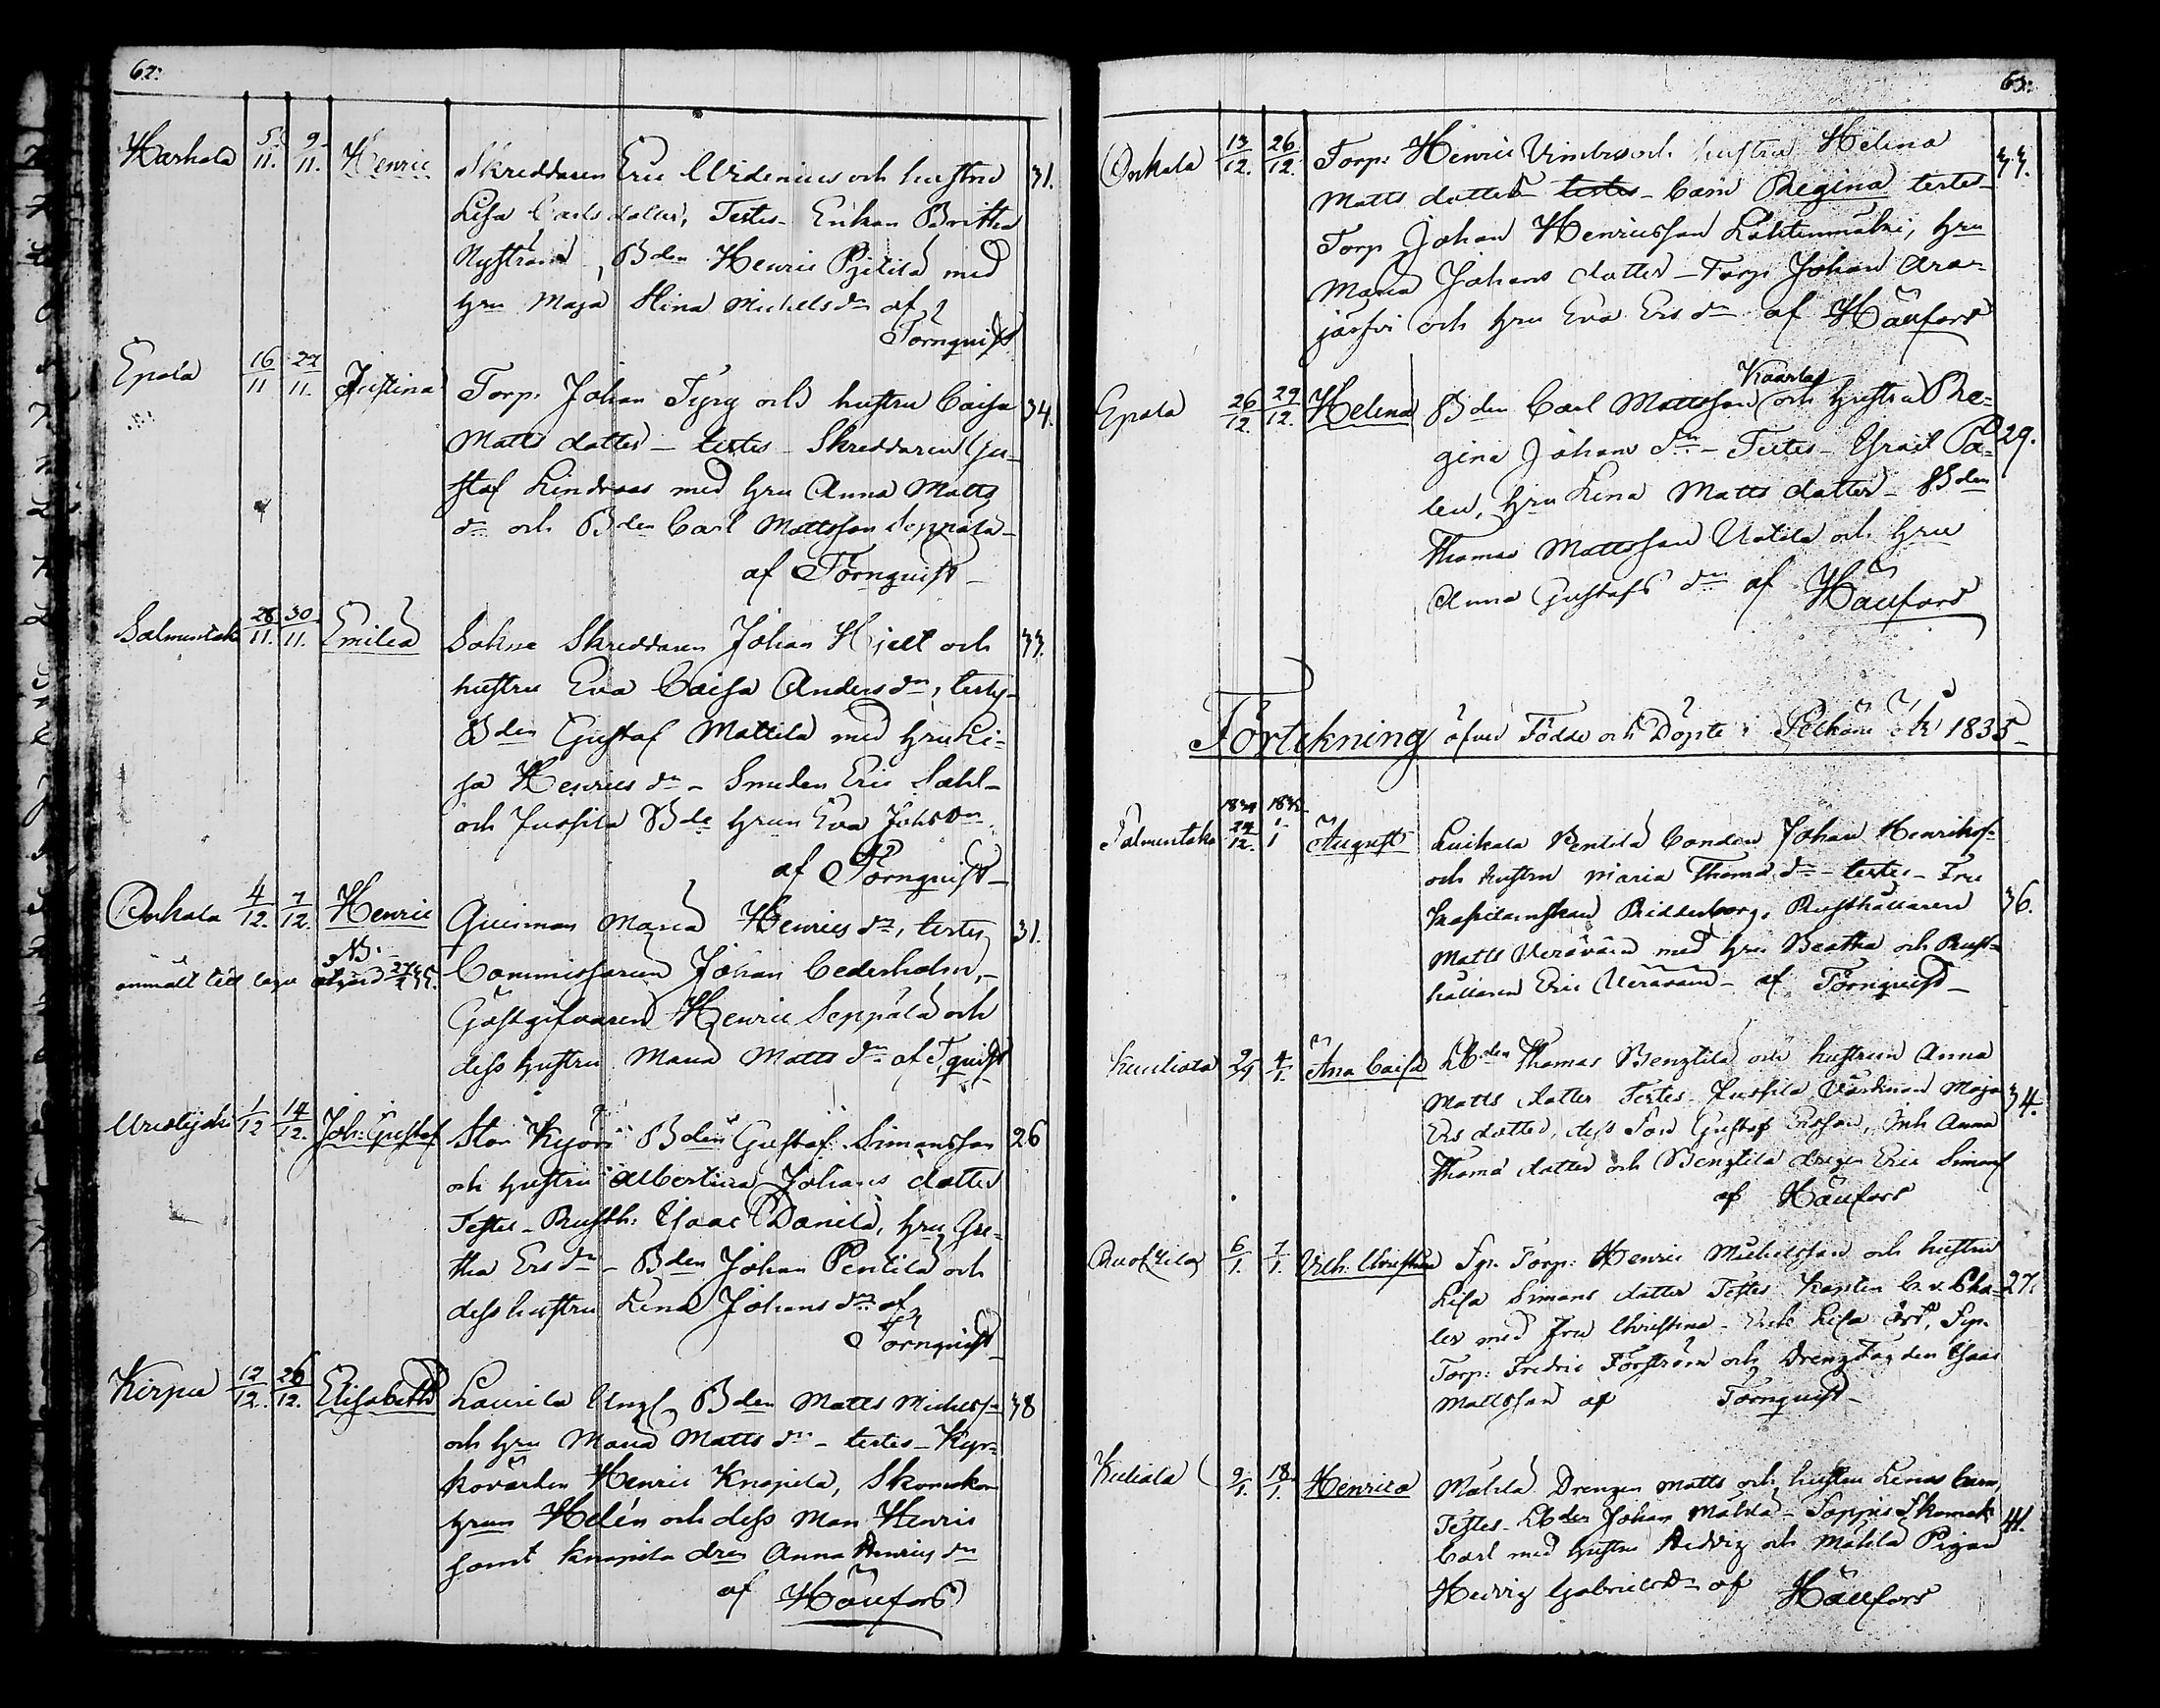 62.
Harhala 5/11. 9/11. Henric Skreddaren Eric Widenius och hustru 31.
Lisa Carls dotter, Testes Enkan Britha
Nyström, Bden Henric Pjetilä med
hru Maja Stina Michels dr af
Törnquist
Epala 16/11 22/11. Justina Torp. Johan Tyrg och hustru Caisa 34.
Matts dotter – testes – Skreddaren Gu-
staf Lindroos med hru Anna Matts
dr och Bden Carl Mattsson Seppälä –
af Törnquist –
Salmentaka 28/11. 30/11. Emilia Sokne Skreddaren Johan Hjelt och 33.
hustru Eva Caisa Anders dr, testes
Bden Gustaf Mattila med hru Li-
sa Henrics dr – Smeden Eric Sahl-
och Jussila Bde hrun Eva Johs dr.
af Törnquist –
Onkala 4/12. 7/12. Henric Quinnan Maria Henrics dr, testes 31.
NB.
anmält till laga åtgärd 27/1 35. Commissarien Johan Cederholm, –
Gästgifvaren Henric Seppälä och
dess hustru Maria Matts dr af Tquist
1/12 14/12. Joh: Gustaf Stor Kyörö Bden Gustaf Simonsson 26
och hustru Albertina Johans dotter
Testes – Rusth: Isaac Danila, hru Gre-
tha Ers dr – Bden Johan Pentilä och
dess hustru Lena Johans dr af
Törnquist –
Kirpu 12/12. 26/12. Elisabeth Laurila Bden Matts Michelss 38
och hru Maria Matts dr – testes – Kyr-
kovärden Henric Knapila, Skomakar
hrun Helén och dess Man Henric
samt Knapila dren Anna Henrics dr
af Häufors
63.
Onkala 13/12. 26/12. Torp. Henric Vimbr och hustru Helena 33.
Matts dotters testes – barn Regina testes –
Torp Johan Henricsson Lähtenmäki, hru
Maria Johans dotter – Torp. Johan Ara-
järfvi och hru Eva Ers dr af Häufors
Kaarla
Epala 26/12. 29/12. Helena Bden Carl Mattsson och hustru Re- 29.
gina Johans dr – Testes – Israel Pa-
len, hru Lena Matts dotter – Bden
Thomas Mattsson Uotila och hru
Anna Gustafs dr af Häufors
Förtekning öfver Födde och Döpte i Pelkäne År 1835 –
1834 1835
Salmentaka 24/12. 1/1 August Luikala Pentilä Bonden Johan Henrikss 36.
och hustru Maria Thomæ dr – testes – Fru
Kapitainskan Ridderborg, Rusthållaren
Matts Veräväin med hru Beatha och Rust-
hållaren Eric Veräväin – af Törnquist –
Kuuliala 2/1 4/1. Ana Caisa LBden Thomas Bengtila och hustrun Anna 34.
Matts dotter Testes Jussila Värdinnan Maja
Ers dotter, dess Son Gustaf Ersson, Inh Anna
Thomæ dotter och Bengtila drengen Eric Simons
af Häufors
6/1. 7/1. Vilh: Christina Sp. Torp: Henric Michelsson och hustru 27.
Lisa Simons dotter Testes Kapten C. v. Cha-
ler med fru Christina – Lisa Ört, Sp.
Torp: Fredric Forström och Isaac
Mattsson af Törnquist –
Kuliala 9/1. 18/1. Henrica Mälilä Drengen Matts och hustru Lenas barn, 41.
Testes – Lbden Johan Mälilä – Soppis Skomak
Carl med hustru Hedvig och Mälilä Pigan
Hedvig Gabriels dr af Häufors